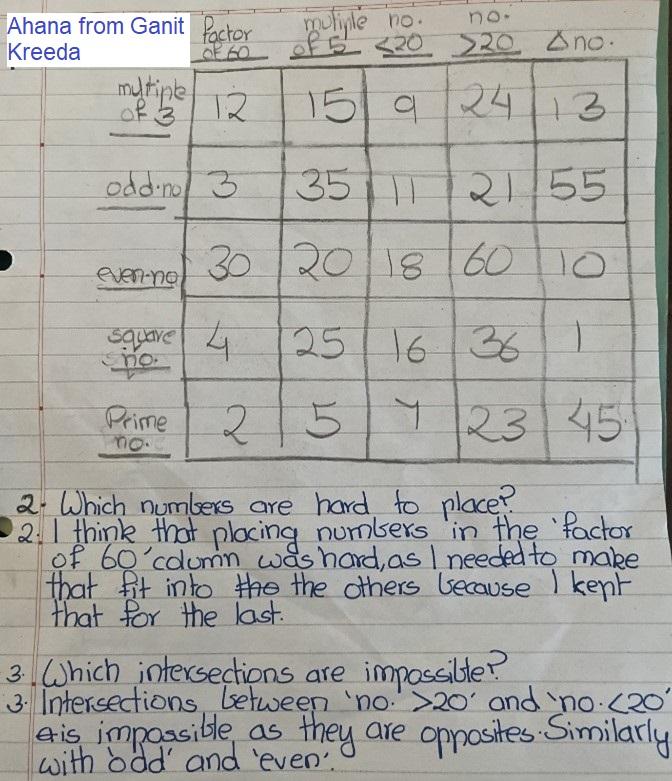 Ahana from Ganit
Kreeda
factor of 60 | mutiple of 5 | no. <20 | no. >20 | Δno.
multiple of 3 | 12 | 15 | 9 | 24 | 13
odd.no | 3 | 35 | 11 | 21 | 55
even.no | 30 | 20 | 18 | 60 | 10
square no. | 4 | 25 | 16 | 36 | 1
Prime no. | 2 | 5 | 7 | 23 | 45
2. Which numbers are hard to place?
2. I think that placing numbers in the 'factor
of 60' column was hard, as I needed to make
that fit into the the others because I kept
that for the last.
3. Which intersections are impossible?
3. Intersections between 'no. >20' and 'no. <20'
is impossible as they are opposites. Similarly
with 'odd' and 'even'.